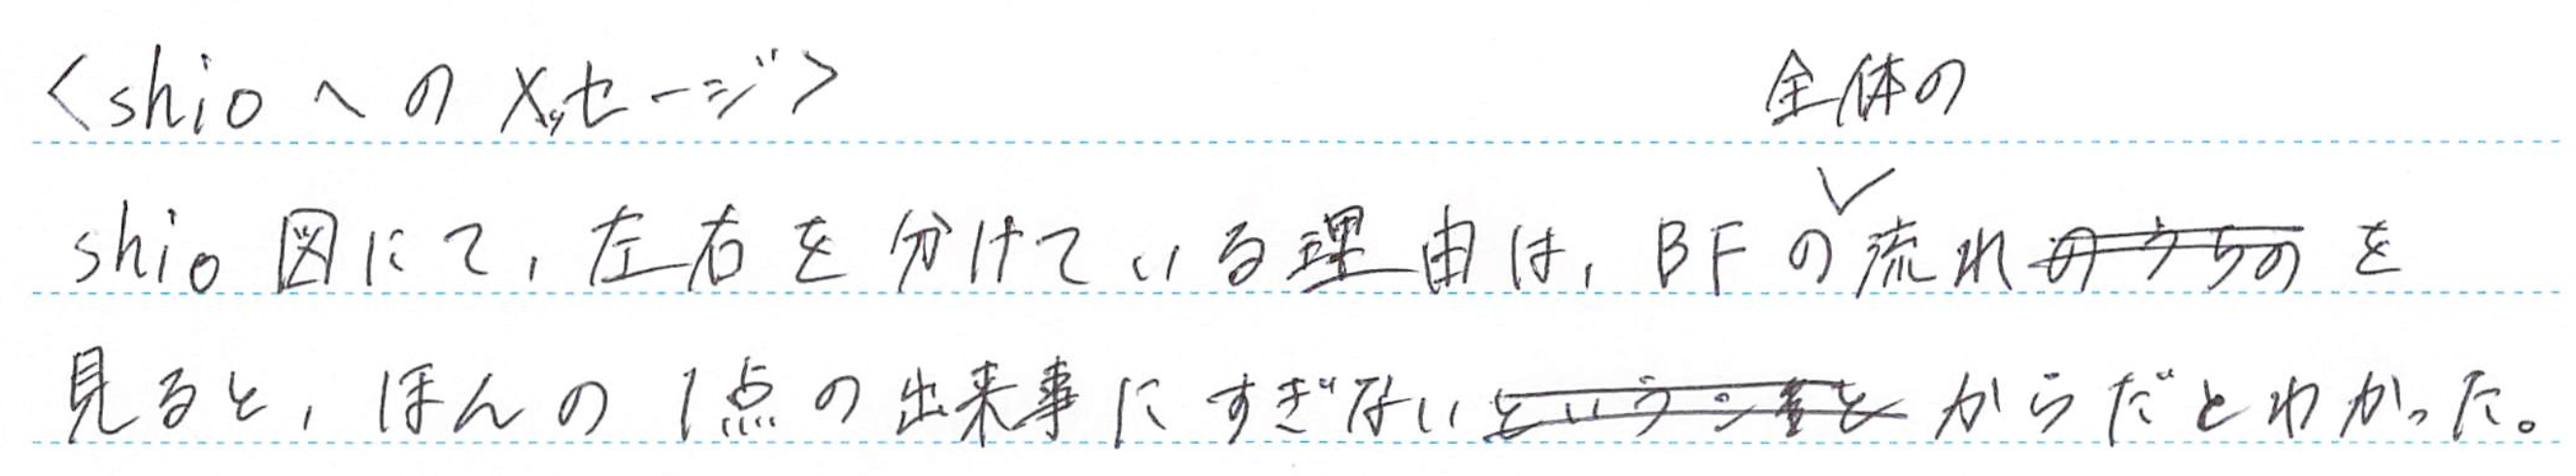 <shioへのメッセージ>
全体の
shio図にて,左右を分けている理由は,BFの流れのうちのを
見ると,ほんの1点の出来事にすぎないということからだとわかった。